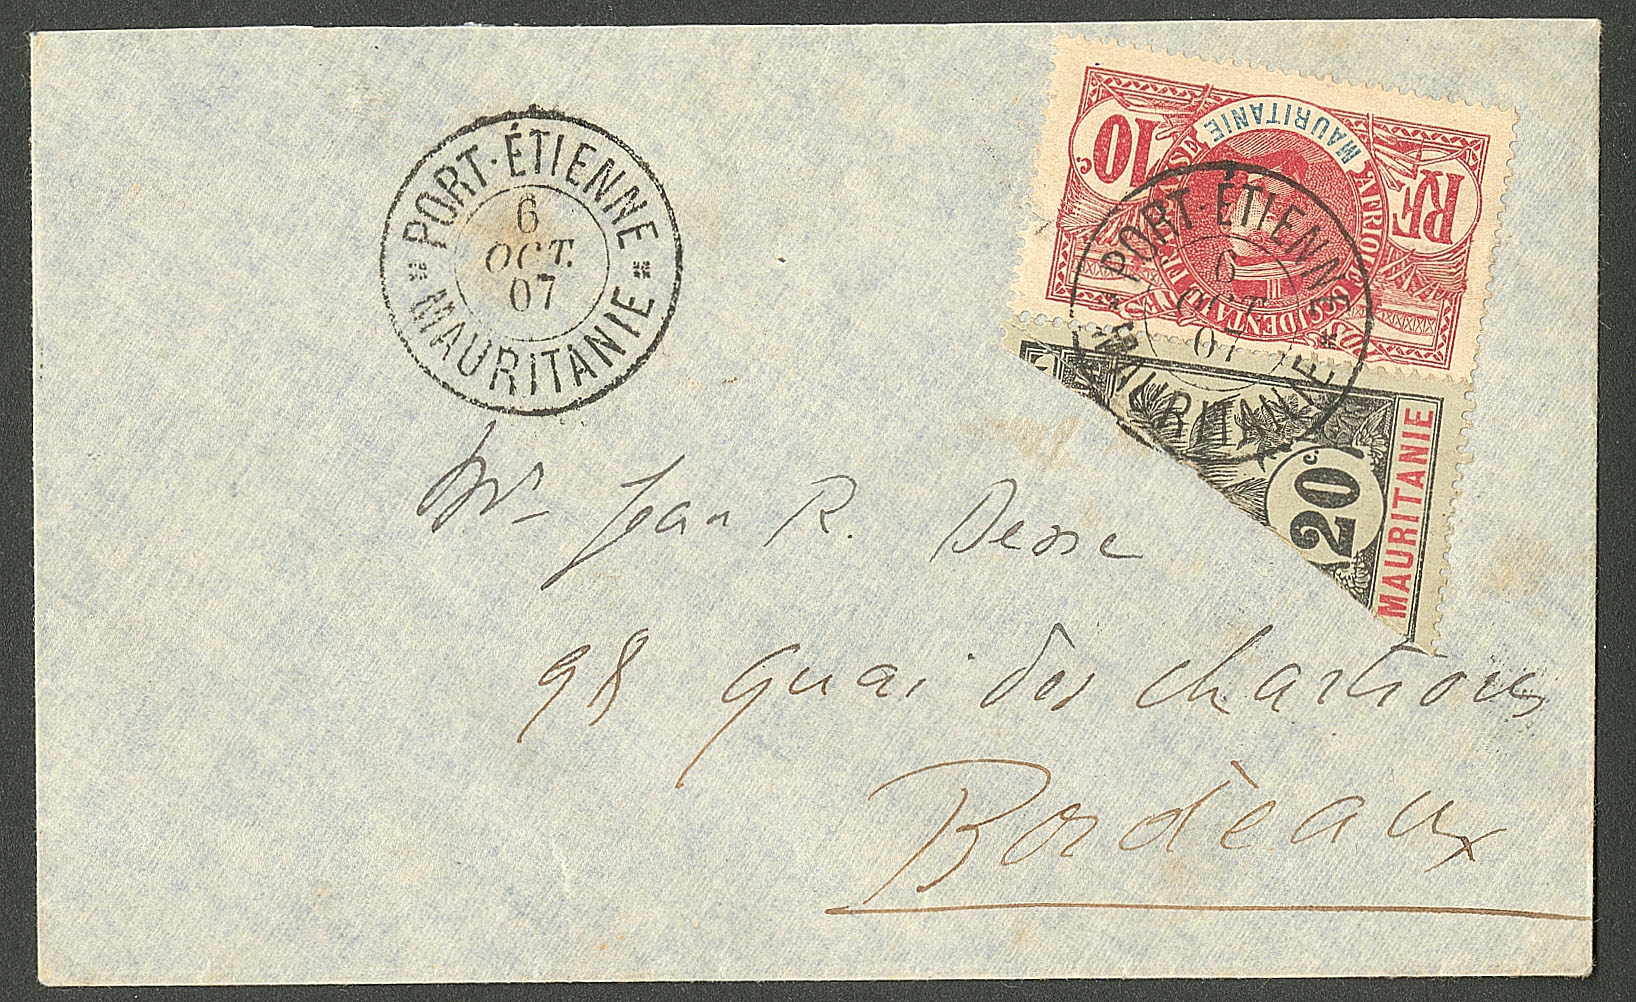 PORT-ÉTIENNE
6
OCT.
07
MAURITANIE
MAURITANIE
10 c.
RF
AFRIQUE OCCIDENTALE FRANÇAISE
PORT-ÉTIENNE
6
OCT.
07
MAURITANIE
20 c.
MAURITANIE
Mr Jean R.
98 quai des Chartrons
Bordeaux